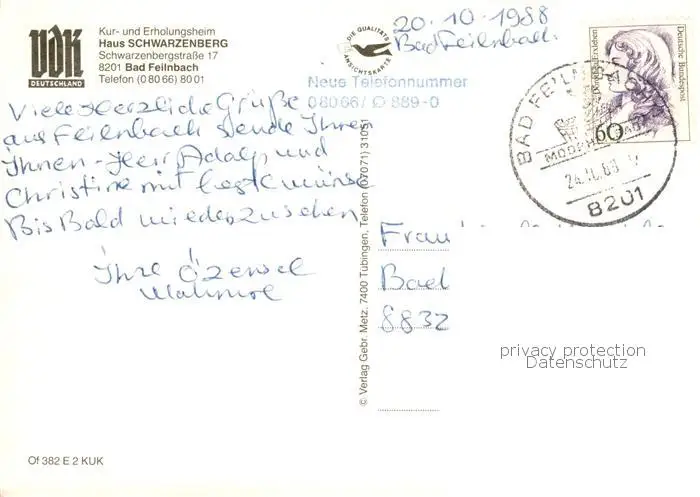 VdK
DEUTSCHLAND
Kur- und Erholungsheim
Haus SCHWARZENBERG
Schwarzenbergstraße 17
8201 Bad Feilnbach
Telefon (0 80 66) 80 01
DIE QUALITÄTS
ANSICHTSKARTE
20.10.1988
Bad Feilnbach
Neue Telefonnummer
08066/ 889-0
Deutsche Bundespost
60
BAD FEILN
MOORHEILBAD
8201
Viele Herzliche Grüße
aus Feilnbach sende Ihnen
Ihnen - Herr Adolf und
Christine mit
Bis Bald wiederzusehen
Ihre
Frau
Bad
8832
© Verlag Gebr. Metz, 7400 Tübingen, Telefon (07071) 31051
privacy protection
Datenschutz
Of 382 E 2 KUK